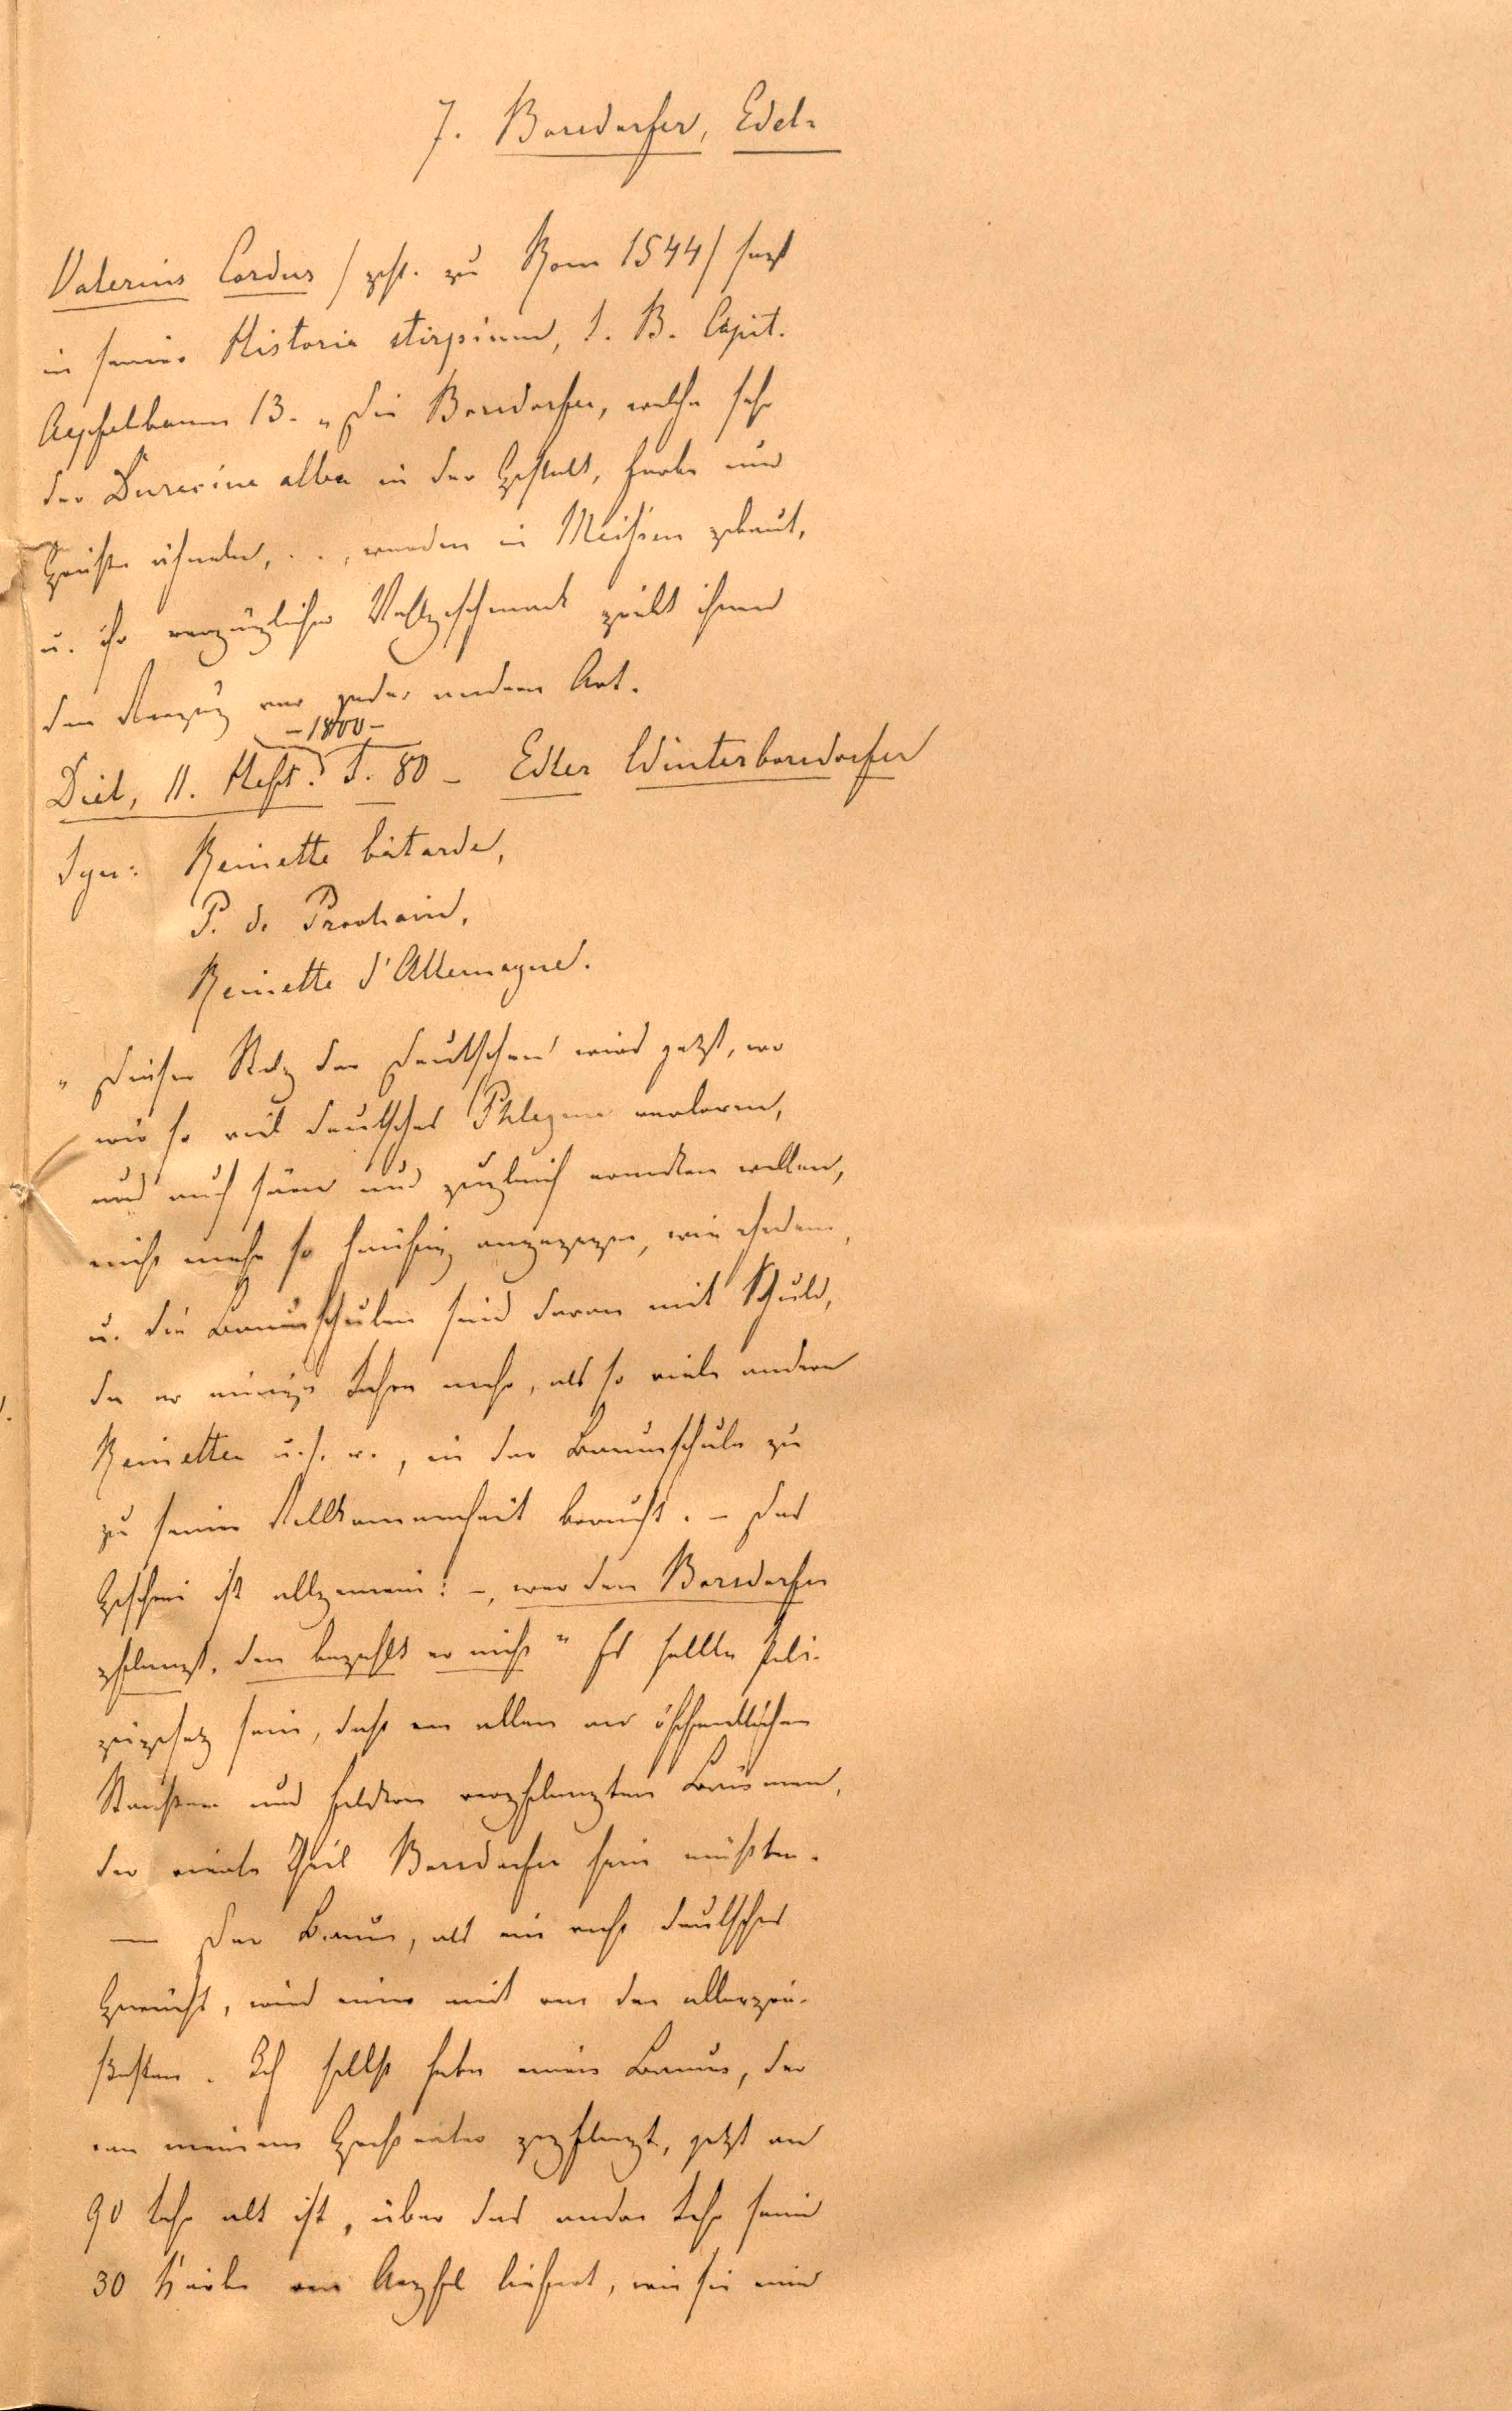 7. Borsdorfer, Edel-
Valerius Cordus / gest. zu Rom 1544 / sagt
in seiner Historia stirpium, 1. B. Capit.
Aepfelbaum 13. „Die Borsdorfer, welche sehr
der Duracine alba in der Gestalt, Farbe und
Größe ähneln, . . , werden in Meißen gebaut,
u. ihr vorzüglicher Wohlgeschmack giebt ihnen
den Vorzug vor jeder andern Art.
- 1800 -
Diel, 11. Heft. S. 80 - Edler Winterborsdorfer
Syn: Reinette bâtarde,
P. de Prochain,
Reinette d'Allemagne.
„ Dieser Stolz der Deutschen wird jetzt, wo
wir so viel deutsches Phlegma verloren,
und auch säen und zugleich erndten wollen,
nicht mehr so häufig angezogen, wie ehedem,
u. die Baumschulen sind daran mit Schuld,
da er einige Jahre mehr, als so viele andere
Reinetten u. s. w., in der Baumschule zu
zu seiner Vollkommenheit braucht. - Das
Geschrei ist allgemein: -, wer den Borsdorfer
pflanzt, den bezahlt er nicht " Es sollte Poli-
zeigesetz sein, daß von allen an öffentlichen
Straßen und Feldern verpflanzten Bäumen,
der vierte Theil Borsdorfer sein müßten.
— Der Baum, als ein recht deutsches
Gewächs, wird einer mit von den allergrö-
ßesten. Ich selbst habe einen Baum, der
von meinem Großvater gepflanzt, jetzt an
90 Jahr alt ist, über das andre Jahr seine
30 Körbe von Aepfel liefert, wie sie nur